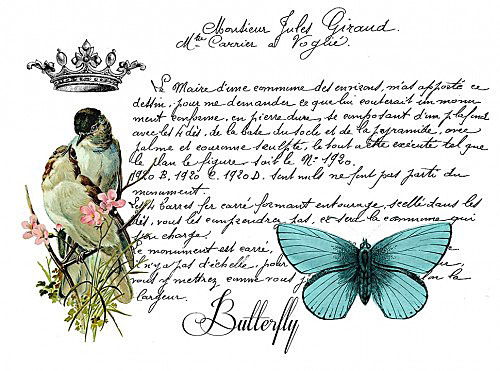 Monsieur Jules Giraud.
Mtre Carrier a Voglié.
Le Maire d'une commune des environs, m'as apporté ce
dessin, pour me demander ce que lui couterait un monu
ment conforme, en pierre dure, se composant d'un plafond
avec les 4 dés, de la base du socle et de la pyramide, avec
palme et couronne sculpté, le tout a être exécuté tel que
le plan le figure soit le No 1920.
1920 B, 1920 C. 1920 D. sont mls ne font pas partie du
monument.
Les barres fer carré formant entourage, scellé dans les
dés, vous les comprendrez pas, et sera la commune qui
charge.
Le monument est carré,
il n'y a pas d'échelle, pour
vous y mettrez comme vous la
largeur.
Butterfly